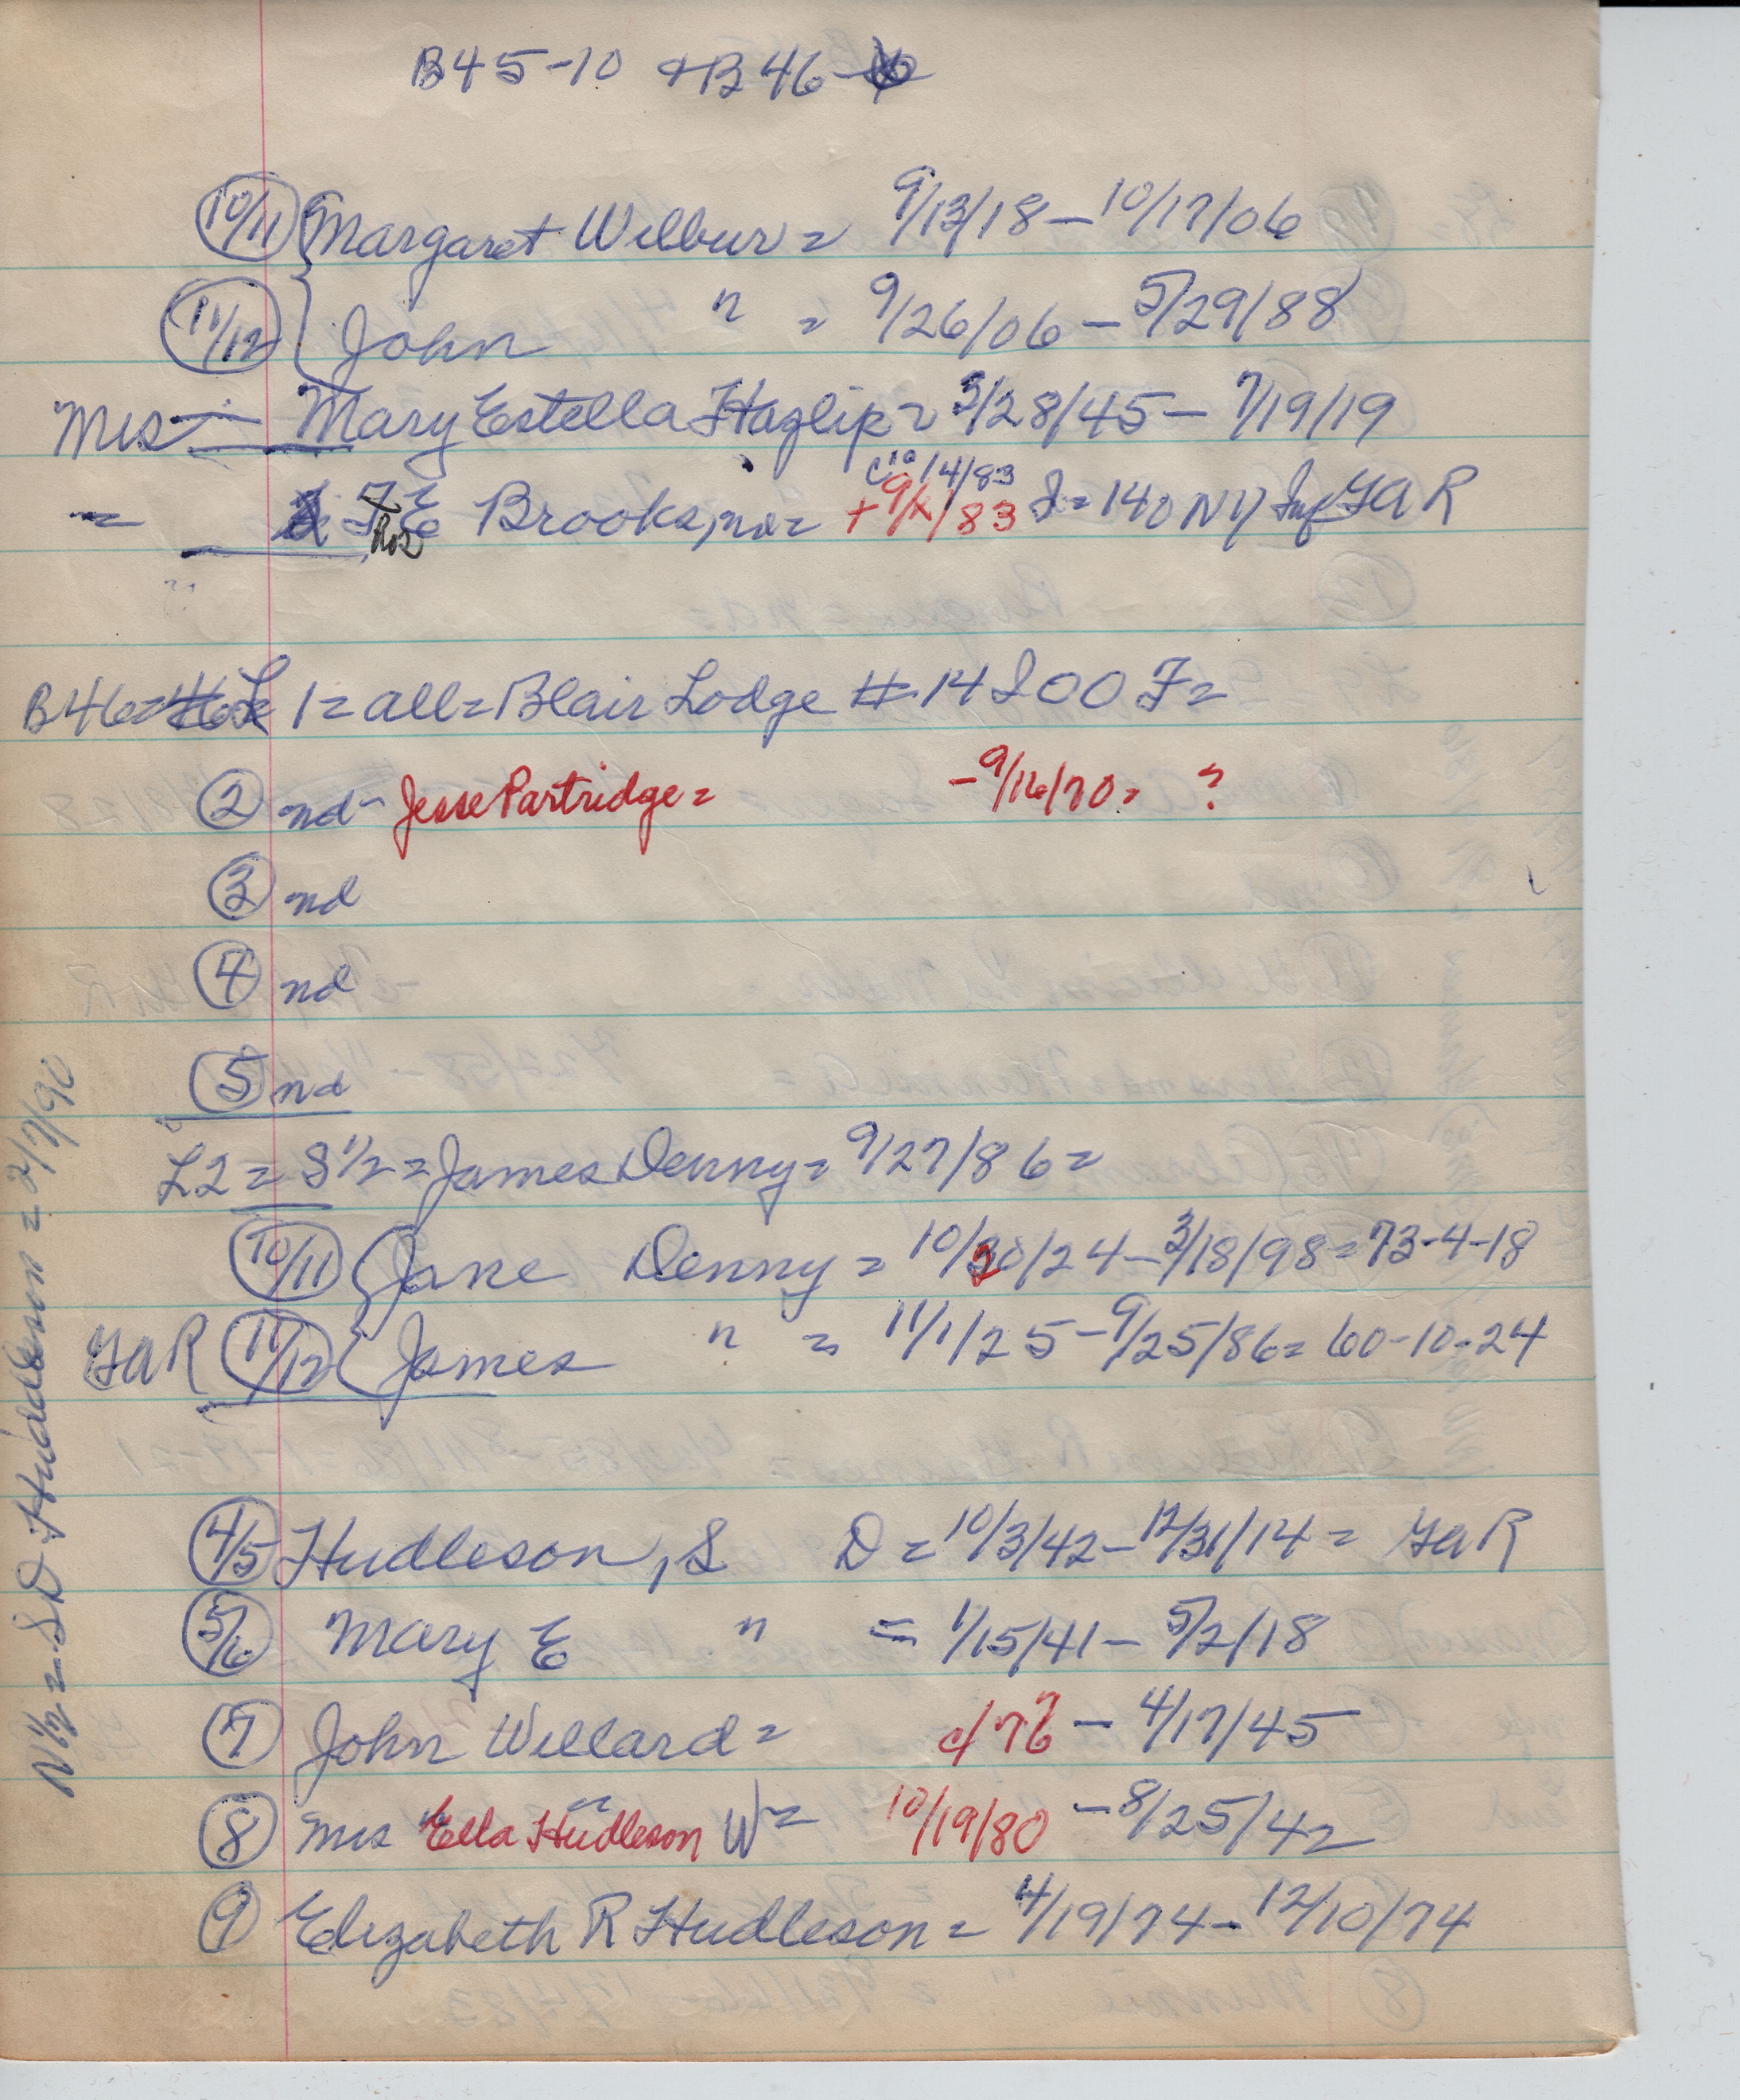 B45-10 + B46-
10/11 Margaret Wilbur = 9/13/18 - 10/17/06
11/12 John " = 9/26/06 - 5/29/88
Mrs - Mary Estella Hazlip = 3/28/45 - 7/19/19
c10/4/83
= Brooks, nd = +9/x/83 I = 140 NY Inf GAR
Ros
B46 = L 1 = all = Blair Lodge # 14 IOOF =
2 nd - Jesse Partridge = - 9/16/70 = ?
3 nd
4 nd
5 nd
L2 = S 1/2 = James Denny = 9/27/86 =
10/11 Jane Denny = 10/30/24 - 3/18/98 = 73-4-18
GAR 11/12 James " = 11/1/25 - 9/25/86 = 60-10-24
4/5 Hudleson, S D = 10/3/42 - 12/31/14 = GAR
5/6 Mary E " = 1/15/41 - 5/2/18
7 John Willard = c/76 - 4/17/45
8 Mrs Ella Hudleson W = 10/19/80 - 8/25/42
9 Elizabeth R Hudleson = 4/19/74 - 12/10/74
N 1/2 = S D Huddleson = 2/7/90